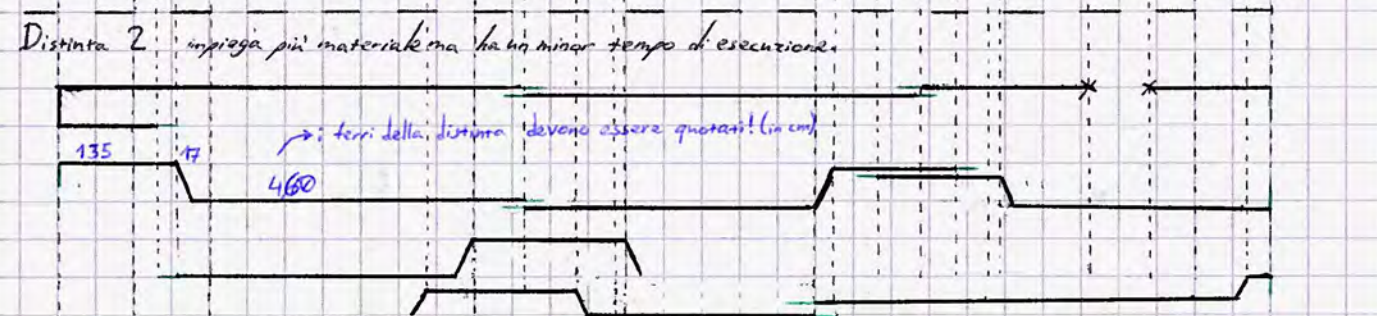 Distinta 2 impiega più materiale ma ha un minor tempo di esecuzione.
→ i ferri della distinta devono essere quotati! (in cm)
135 17
460